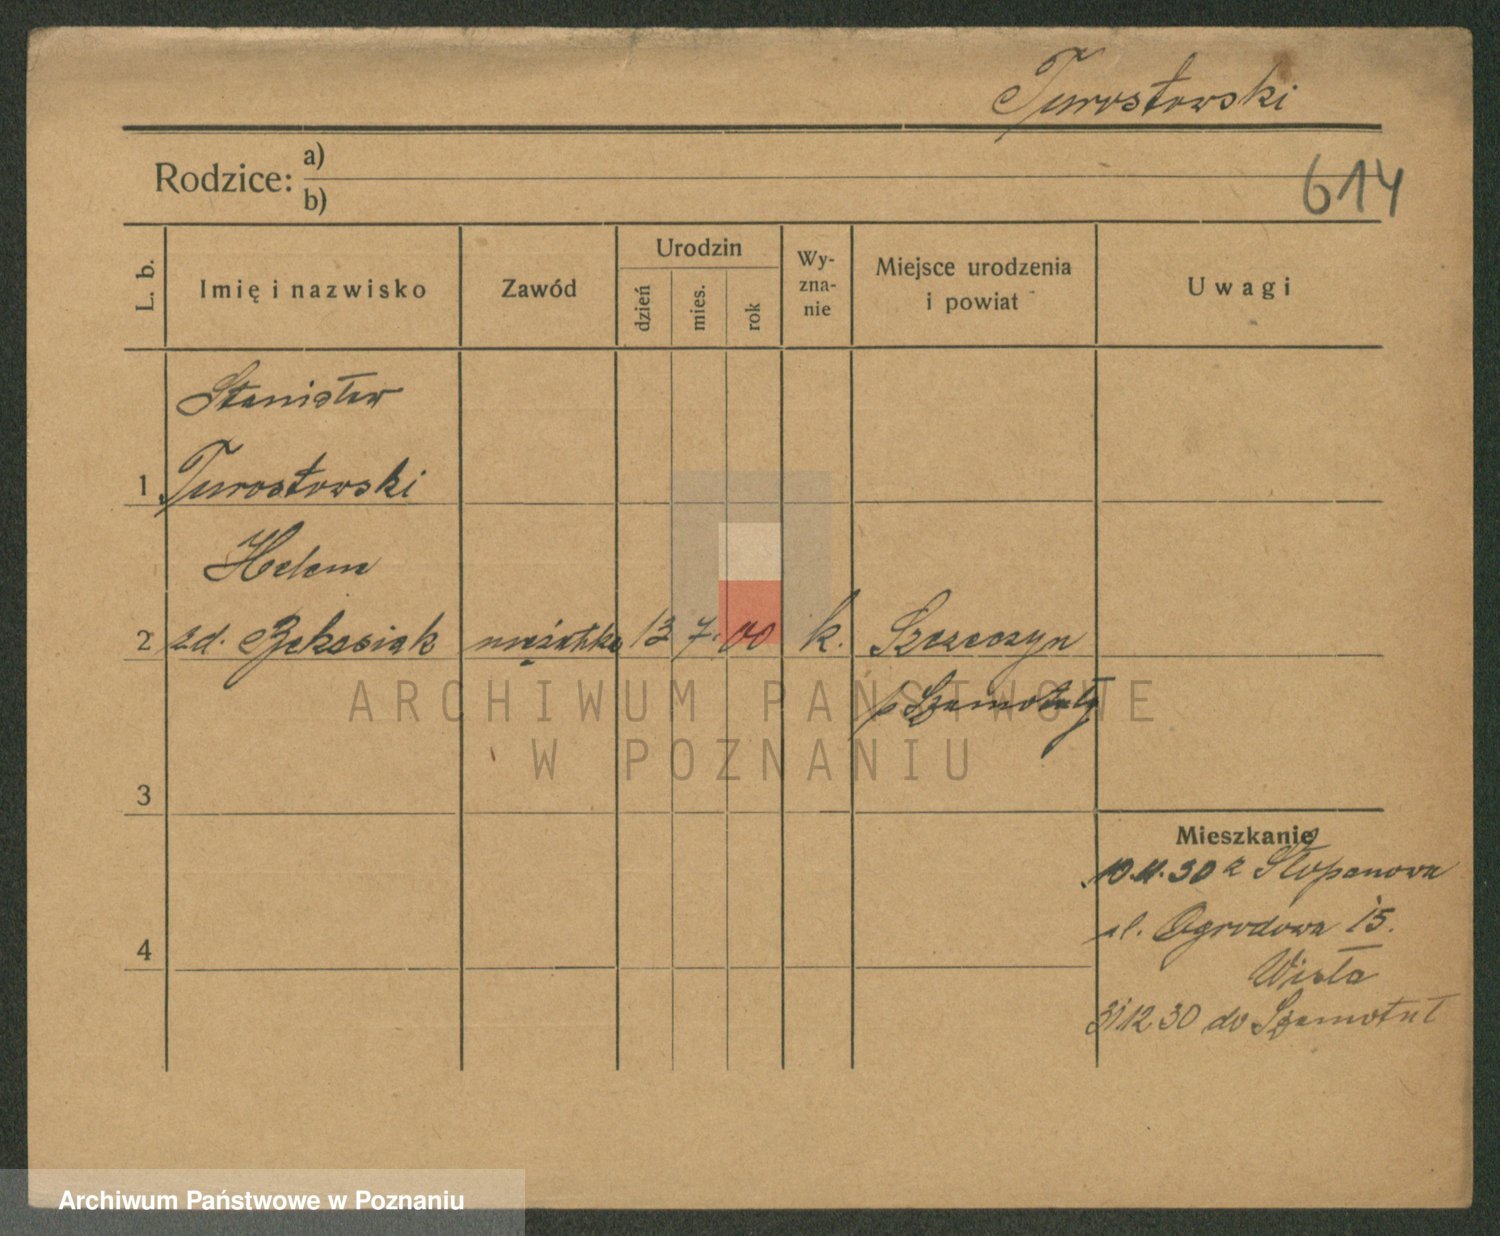 Turostowski
Rodzice: a)
b)
614
L. b.
Imię i nazwisko
Zawód
Urodzin
dzień
mies.
rok
Wy-
zna-
nie
Miejsce urodzenia
i powiat
Uwagi
Stanisław
1 Turostowski
Helena
2 zd. mężatka 13 7. 00 k. Szczeczyn
p Szamotuły
ARCHIWUM PAŃSTWOWE
W POZNANIU
3
Mieszkanie
10.11.30 z Stopanowa
ul. Ogrodowa 15.
4
Wista
31 12 30 do Szamotuł
Archiwum Państwowe w Poznaniu